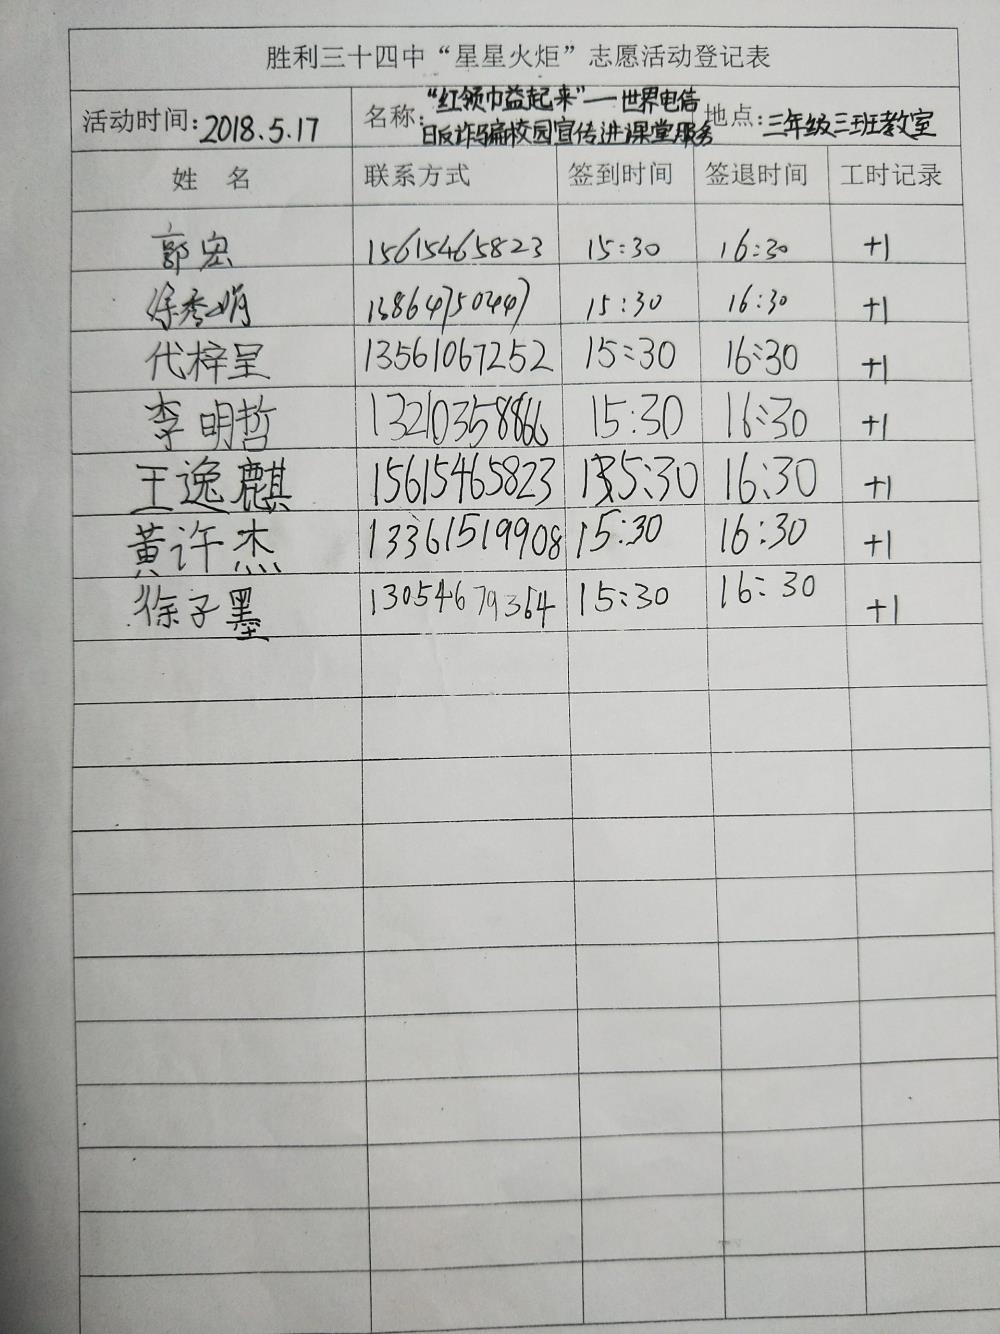 胜利三十四中“星星火炬”志愿活动登记表
活动时间:2018.5.17 名称:“红领巾益起来”——世界电信日反诈骗校园宣传进课堂服务 地点:三年级三班教室
姓 名 联系方式 签到时间 签退时间 工时记录
郭宏 15615465823 15:30 16:30 +1
徐秀娟 13864750447 15:30 16:30 +1
代梓呈 13561067252 15:30 16:30 +1
李明哲 13210358866 15:30 16:30 +1
王逸麒 15615465823 15:30 16:30 +1
黄许杰 13361519908 15:30 16:30 +1
徐子墨 13054679364 15:30 16:30 +1